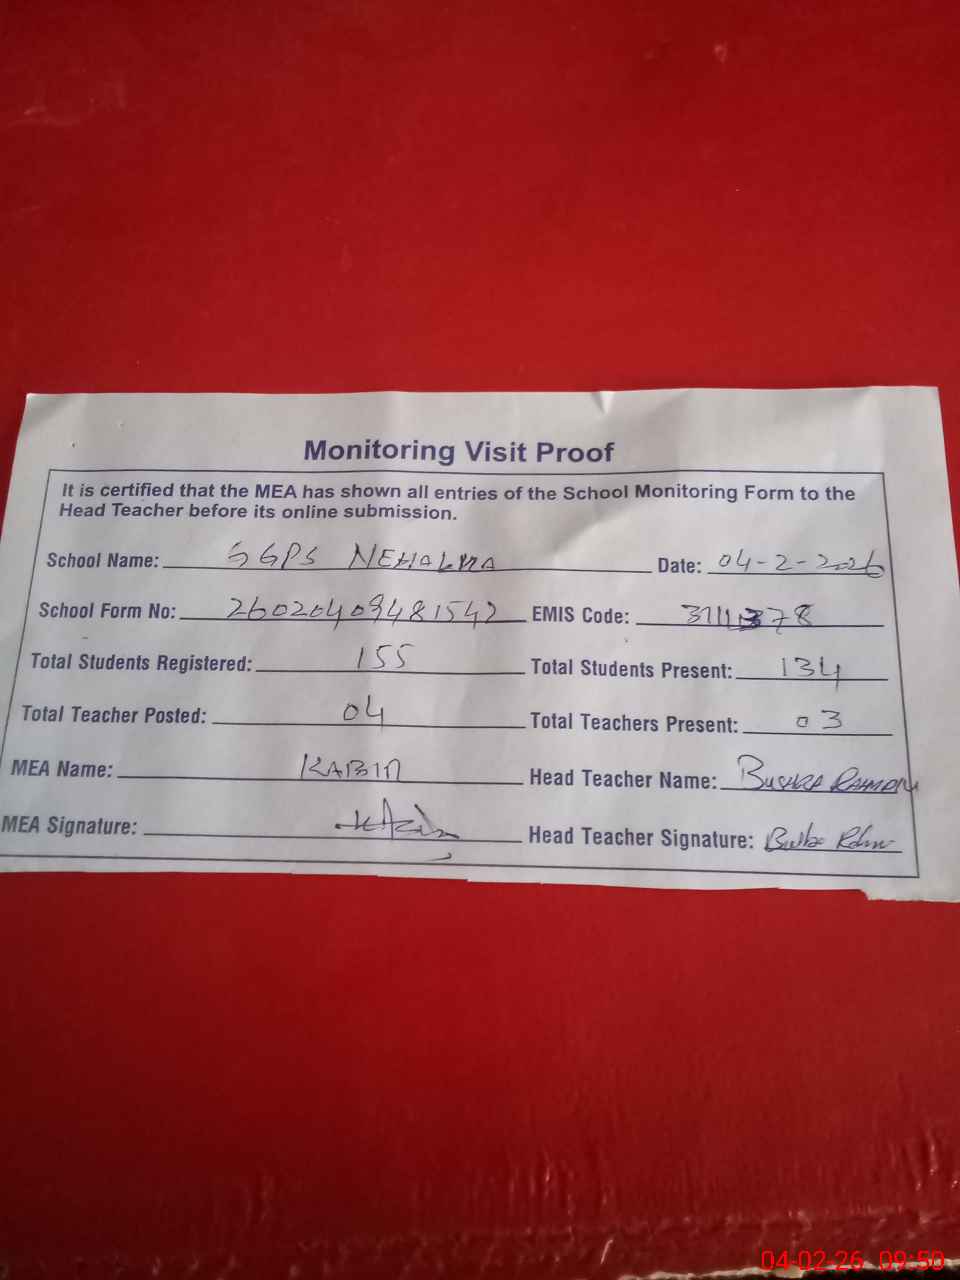 Monitoring Visit Proof
It is certified that the MEA has shown all entries of the School Monitoring Form to the
Head Teacher before its online submission.
School Name: GGPS Date: 04-2-2026
School Form No: 26020409481542 EMIS Code:
Total Students Registered: 155 Total Students Present: 134
Total Teacher Posted: 04 Total Teachers Present: 03
MEA Name: KABIR Head Teacher Name: BUSHRA
MEA Signature: Head Teacher Signature:
04-02-26 09:50